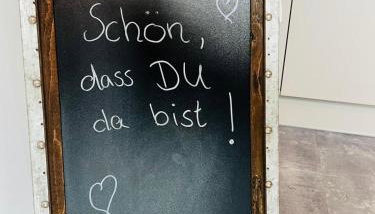 Schön,
dass DU
da bist!